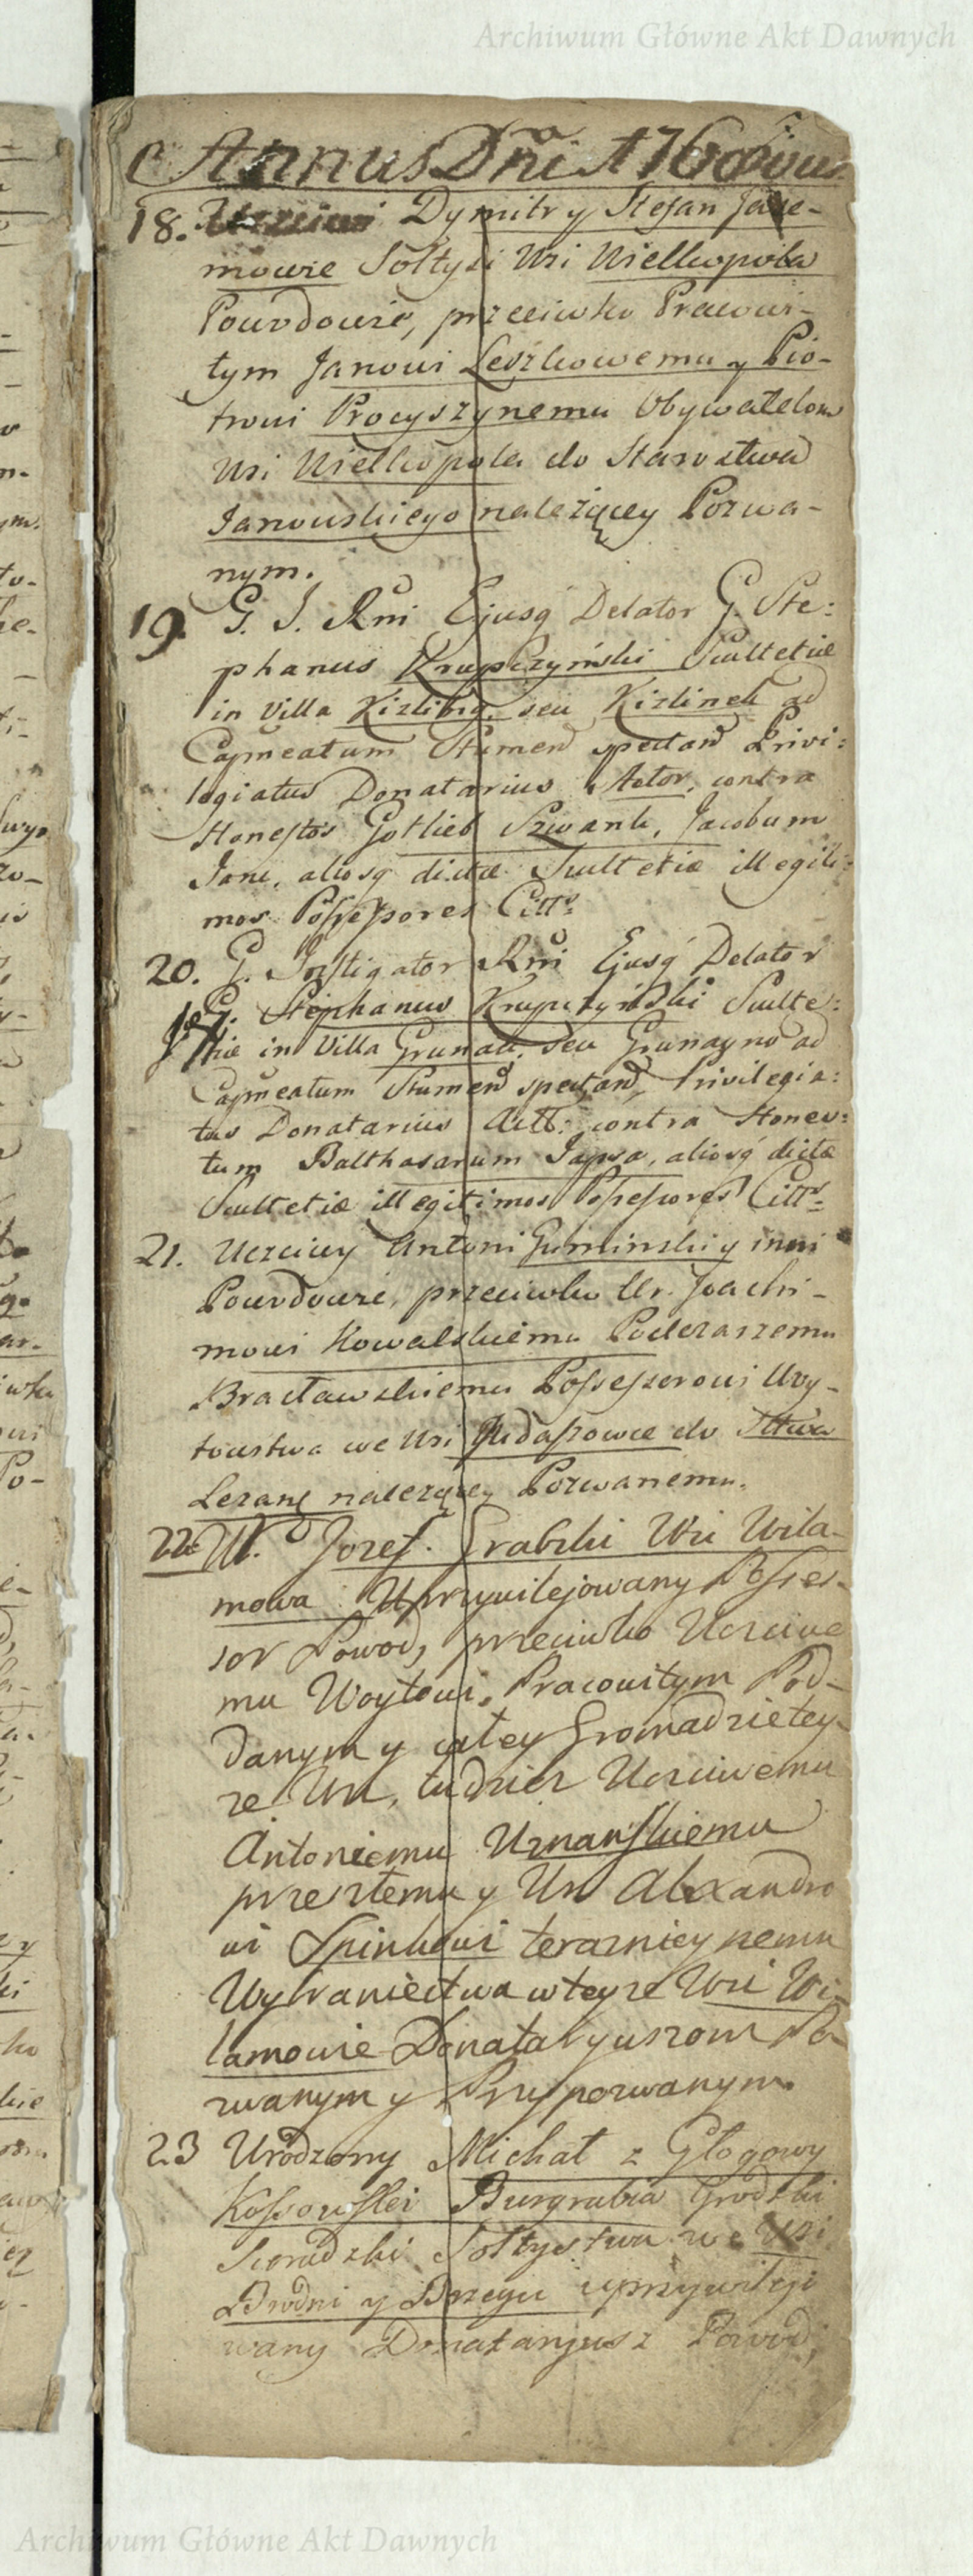 Archiwum Główne Akt Dawnych
Annus Dñi 176
18. Uczciwi Dymitr y Stefan
mowie Sołtysi Wsi Wielkopola
Powodowie, przeciwko Pracowi-
tym Janowi Leszkowemu y Pio-
trowi Procyszynemu Obywatelom
Wsi Wielkopola do Starostwa
Janowskiego należącey Pozwa-
nym.
19. G. I. Rni Ejusq Delator G. Ste:
phanus Krupczyński Scultetiæ
in Villa seu Kizlinek ad
Capneatum Stumen spectan Privi:
legiatus Donatarius Actor, contra
Honestos Gotlieb Szwank, Jacobum
Jani, aliosq dictæ Scultetiæ illegiti:
mos Possessores Citt
20. G. Instigator Rni Ejusq Delator
G. Stephanus Krupczyński Sculte:
tiæ in Villa Grunau, seu ad
Capneatum Stumen spectan, Privilegia:
tus Donatarius Act: contra Hones:
tum Balthasarum Japsa, aliosq dictæ
Scultetiæ illegitimos Possessores Citt
21. Uczciwy Antoni Guminski y inni
Powodowie, przeciwko Ur. Joachi-
mowi Kowalskiemu Podczaszemu
Bracławskiemu Possessorowi Woy-
towstwa we Wsi do Sttwa
Leżans należącey Pozwanemu.
22. W. Jozef Grabski Wsi Wila-
mowa Uprzywilejowany Posses-
sor Powod, przeciwko Uczciwe
mu Woytowi, Pracowitym Pod-
danym y całey Gromadzie tey-
że Wsi, tudziez Uczciwemu
Antoniemu Uznańskiemu
przeszłemu y Ur Alexandro
wi Spinkowi teraznieyszemu
Wybraniectwa w teyze Wsi Wi-
lamowie Donataryuszom Po-
zwanym y Przypozwanym.
23 Urodzony Michał z Głogowy
Kossowski Burgrabia Grodzki
Sieradzki Sołtystwa we Wsi
Brodni y Brzegu uprzywileji
wany Donatarjusz Powod,
Archiwum Główne Akt Dawnych